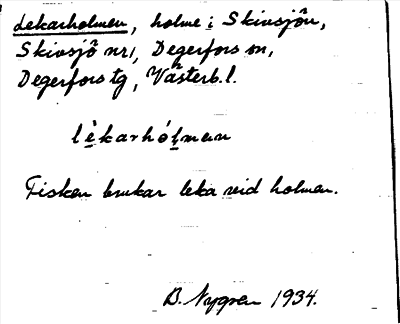 Lekarholmen, holme i Skivsjön,
Skivsjö nr 1, Degerfors sn,
Degerfors tg, Västerb. l.
lèkarhólmen
Fisken brukar leka vid holmen.
B. Nygren 1934.